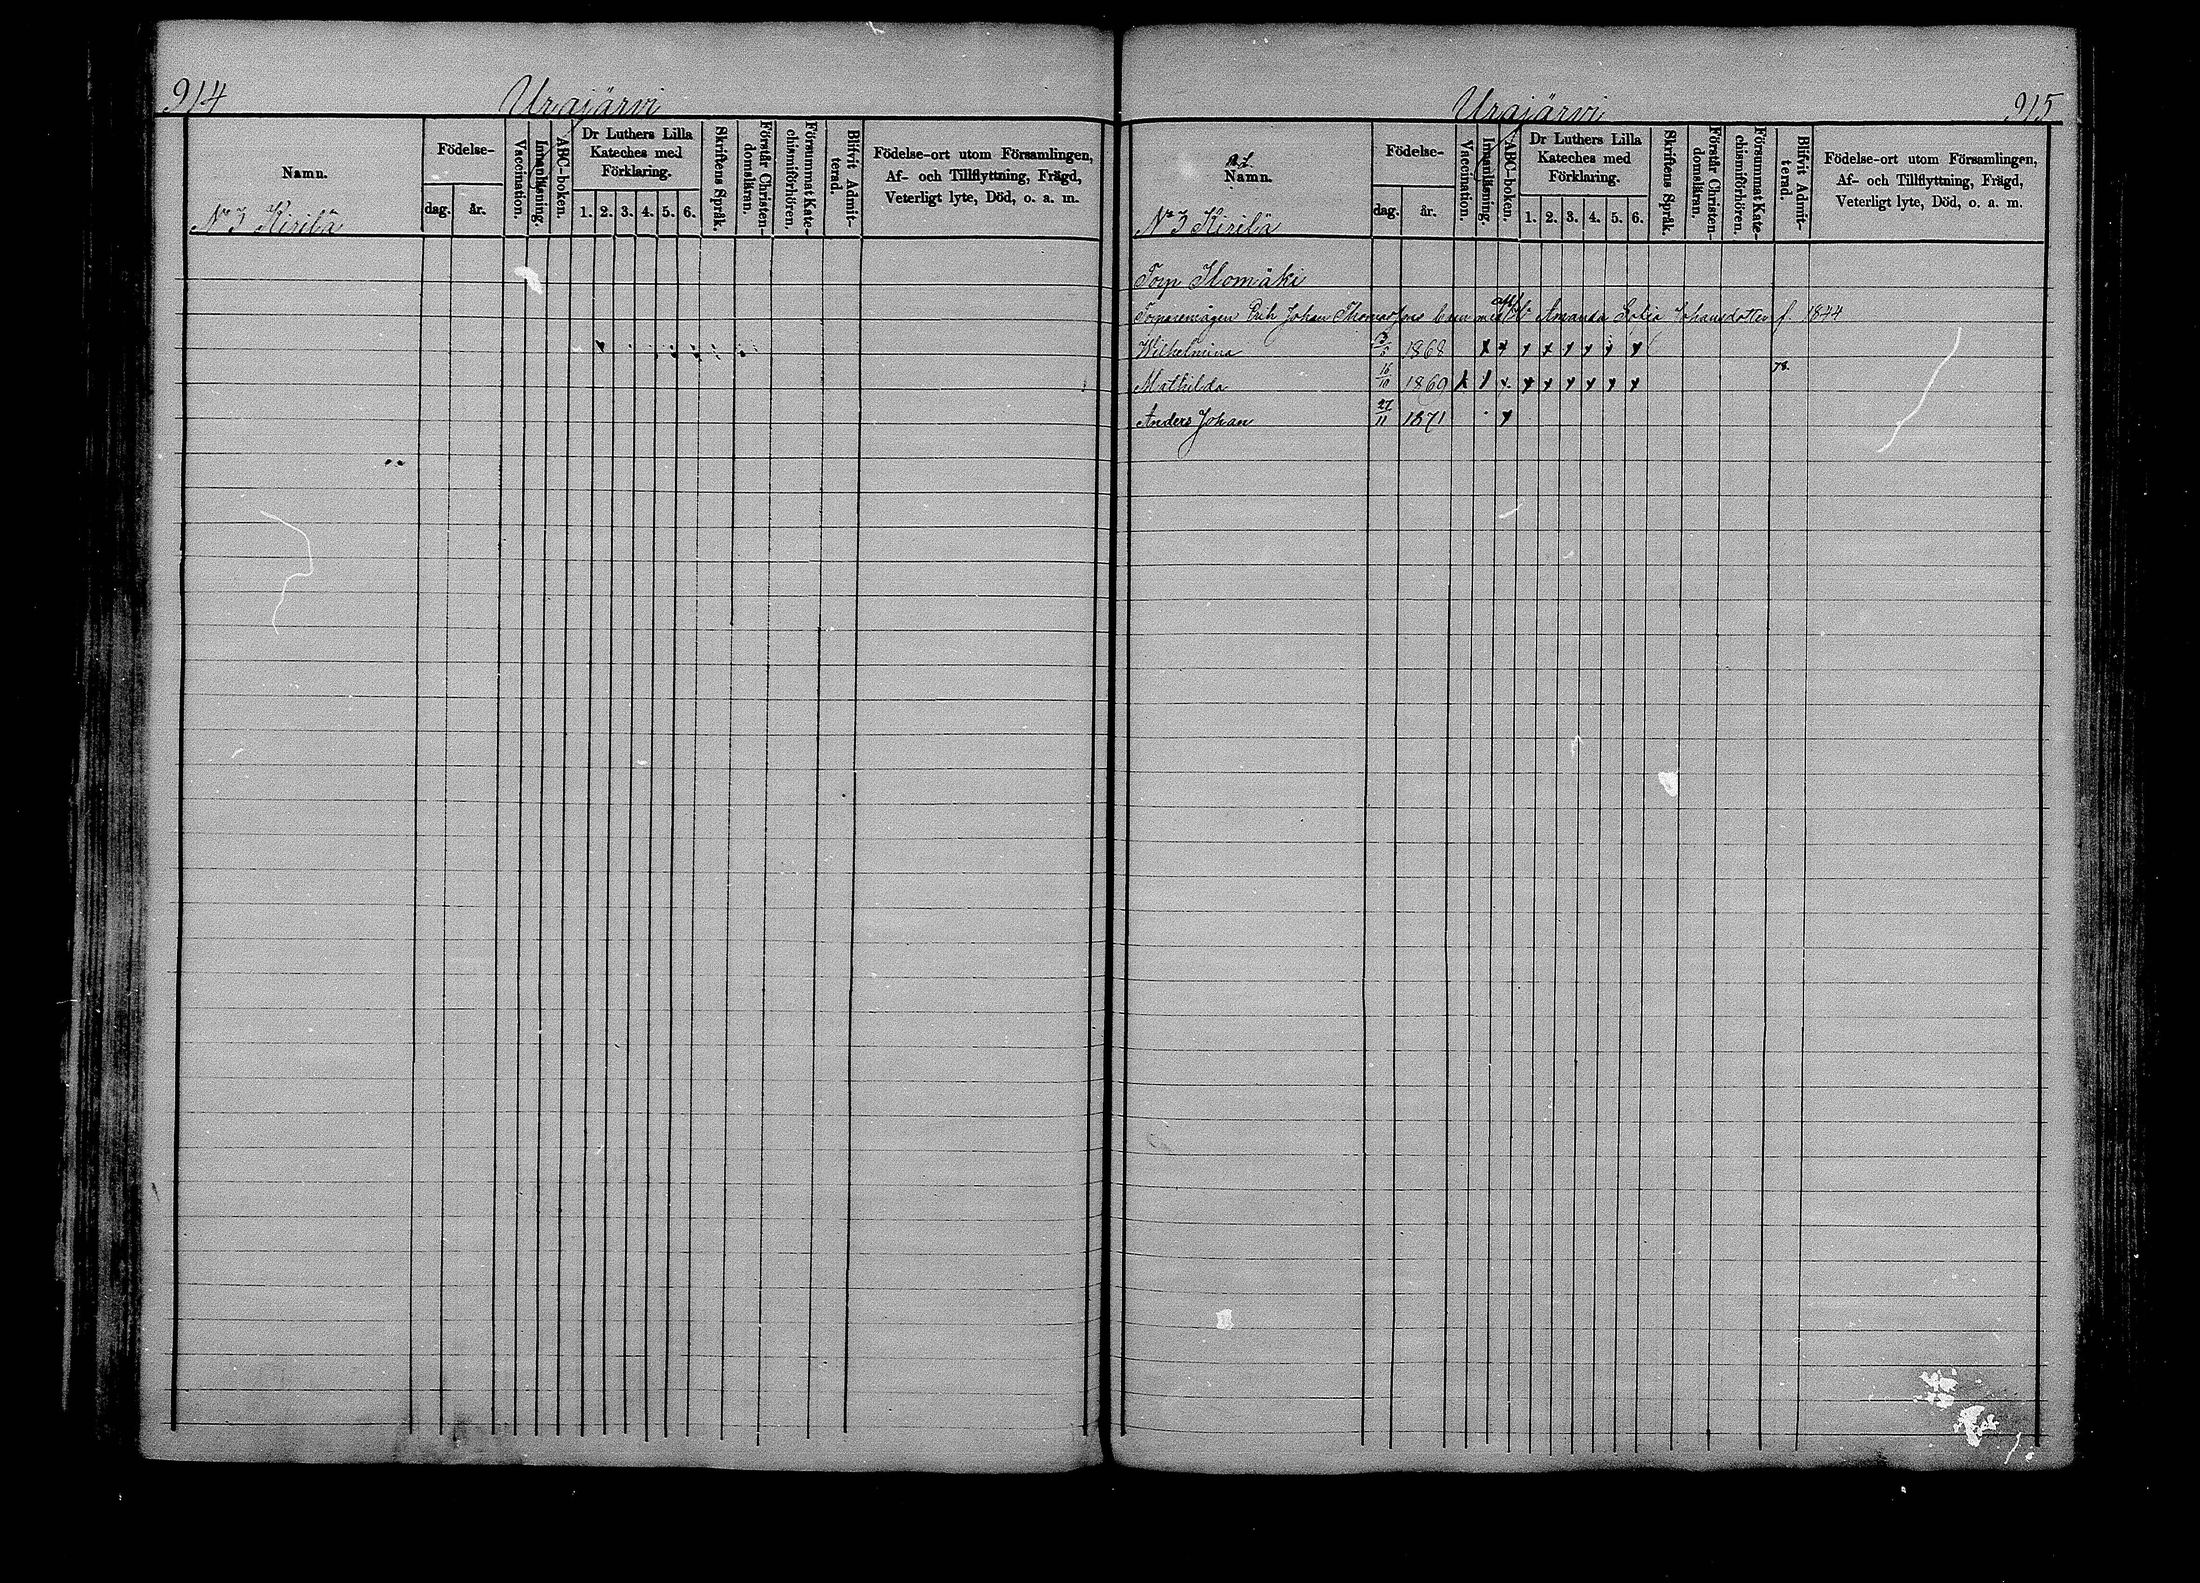 914
Urajärvi
Namn.
Födelse-
dag.
år.
Vaccination.
Innanläsning.
ABC-boken.
Dr Luthers Lilla
Kateches med
Förklaring.
1. 2. 3. 4. 5. 6.
Skriftens Språk.
Förstår Christen-
domsläran.
Försummat Kate-
chismiförhören.
Blifvit Admit-
terad.
Födelse-ort utom Församlingen,
Af- och Tillflyttning, Frägd,
Veterligt lyte, Död, o. a. m.
No 3 Kirilä
Urajärvi
915
Namn.
Födelse-
dag.
år.
Vaccination.
Innanläsning.
ABC-boken.
Dr Luthers Lilla
Kateches med
Förklaring.
1. 2. 3. 4. 5. 6.
Skriftens Språk.
Förstår Christen-
domsläran.
Försummat Kate-
chismiförhören.
Blifvit Admit-
terad.
Födelse-ort utom Församlingen,
Af- och Tillflyttning, Frägd,
Veterligt lyte, Död, o. a. m.
No 3 Kirilä
Torp Ilomäki
Johan Thomasfons barn med Amanda Sofia Johansdotter f. 1844
Wilhelmina 1868 x x x x x x x x
Mathilda 16/10 1869 x x x x x x x x x 78
Anders Johan 27/11 1871 x